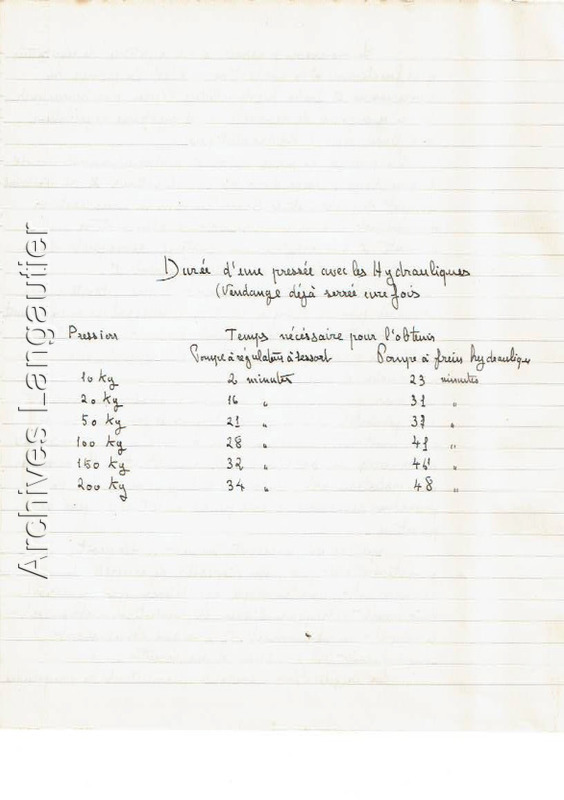 Archives Langautier
Durée d'une pressée avec les Hydrauliques
(Vendange déjà serrée une fois
Pression Temps nécéssaire pour l'obtenir
Pompe à régulateur à ressort Pompe à frein hydraulique
10 kg 2 minutes 23 minutes
20 kg 16 " 31 "
50 kg 21 " 37 "
100 kg 28 " 41 "
150 kg 32 " 44 "
200 kg 34 " 48 "